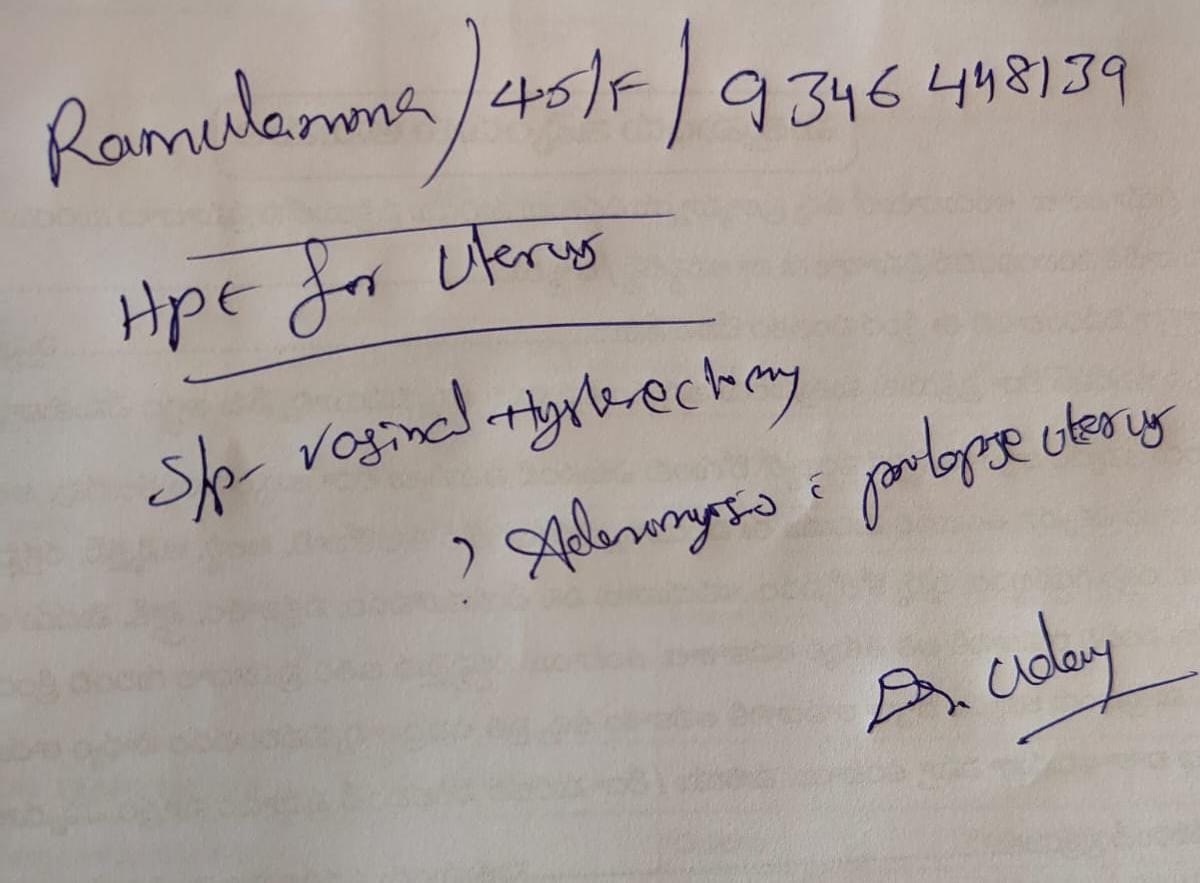 Ramulamma / 45/F / 9346448139
HPE for Uterus
S/p- vaginal Hysterectomy
? Adenomyosis c prolapse uterus
Dr. Uday